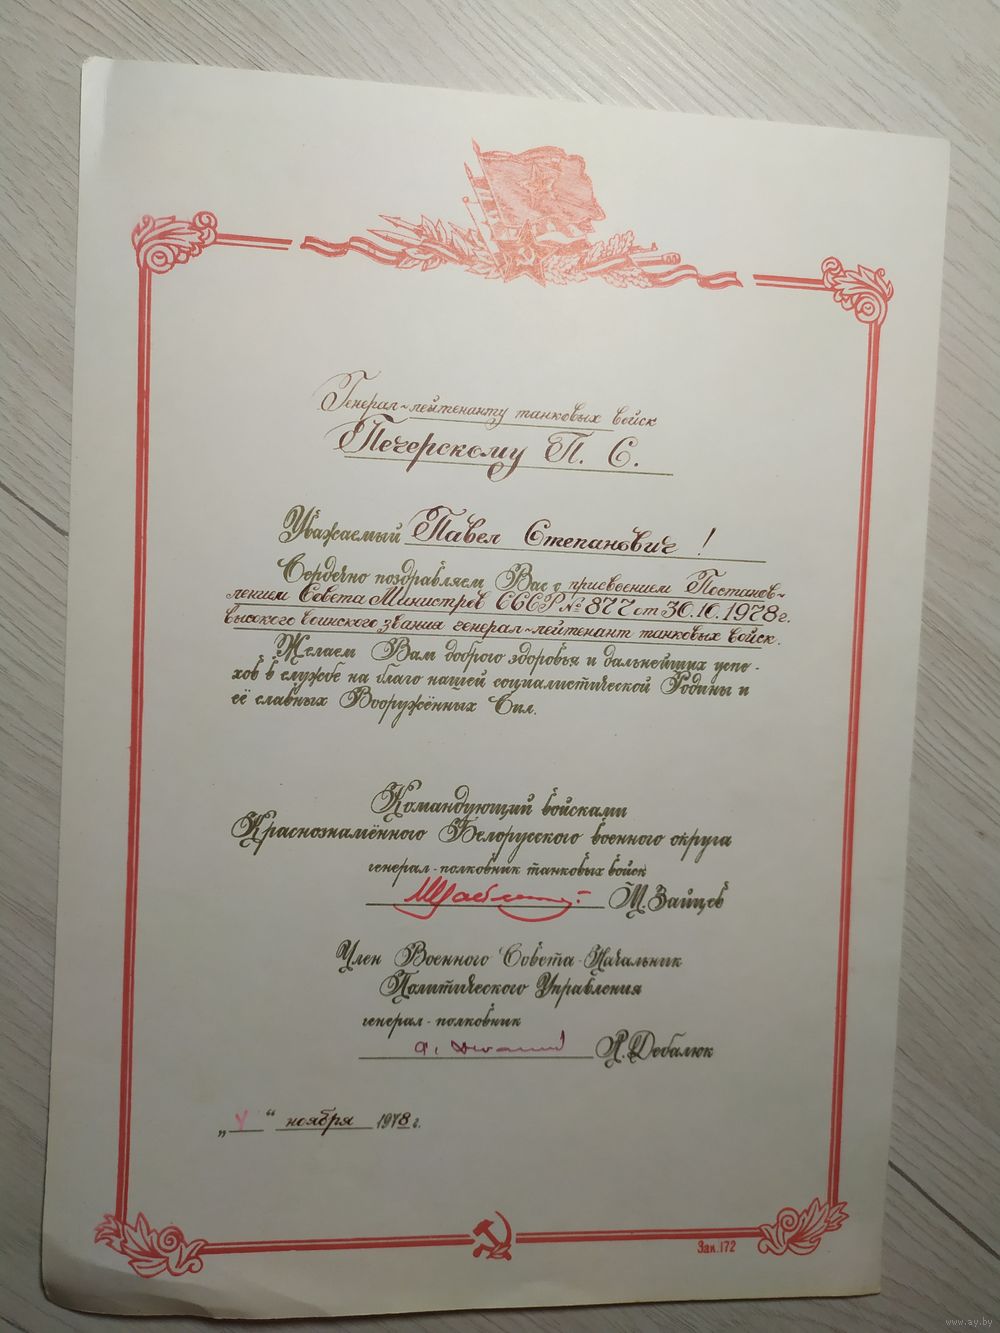 Генерал-лейтенанту танковых войск
Печерскому П. С.
Уважаемый Павел Степанович!
Сердечно поздравляем Вас с присвоением Постанов-
лением Совета Министров СССР № 877 от 30.10.1978г.
высокого воинского звания генерал-лейтенант танковых войск.
Желаем Вам доброго здоровья и дальнейших успе-
хов в службе на благо нашей социалистической Родины и
её славных Вооружённых Сил.
Командующий войсками
Краснознамённого Белорусского военного округа
генерал-полковник танковых войск
М. Зайцев
Член Военного Совета - Начальник
Политического Управления
генерал-полковник
А. Дебалюк
„ “ ноября 1978 г.
Зак. 172
www.ay.by